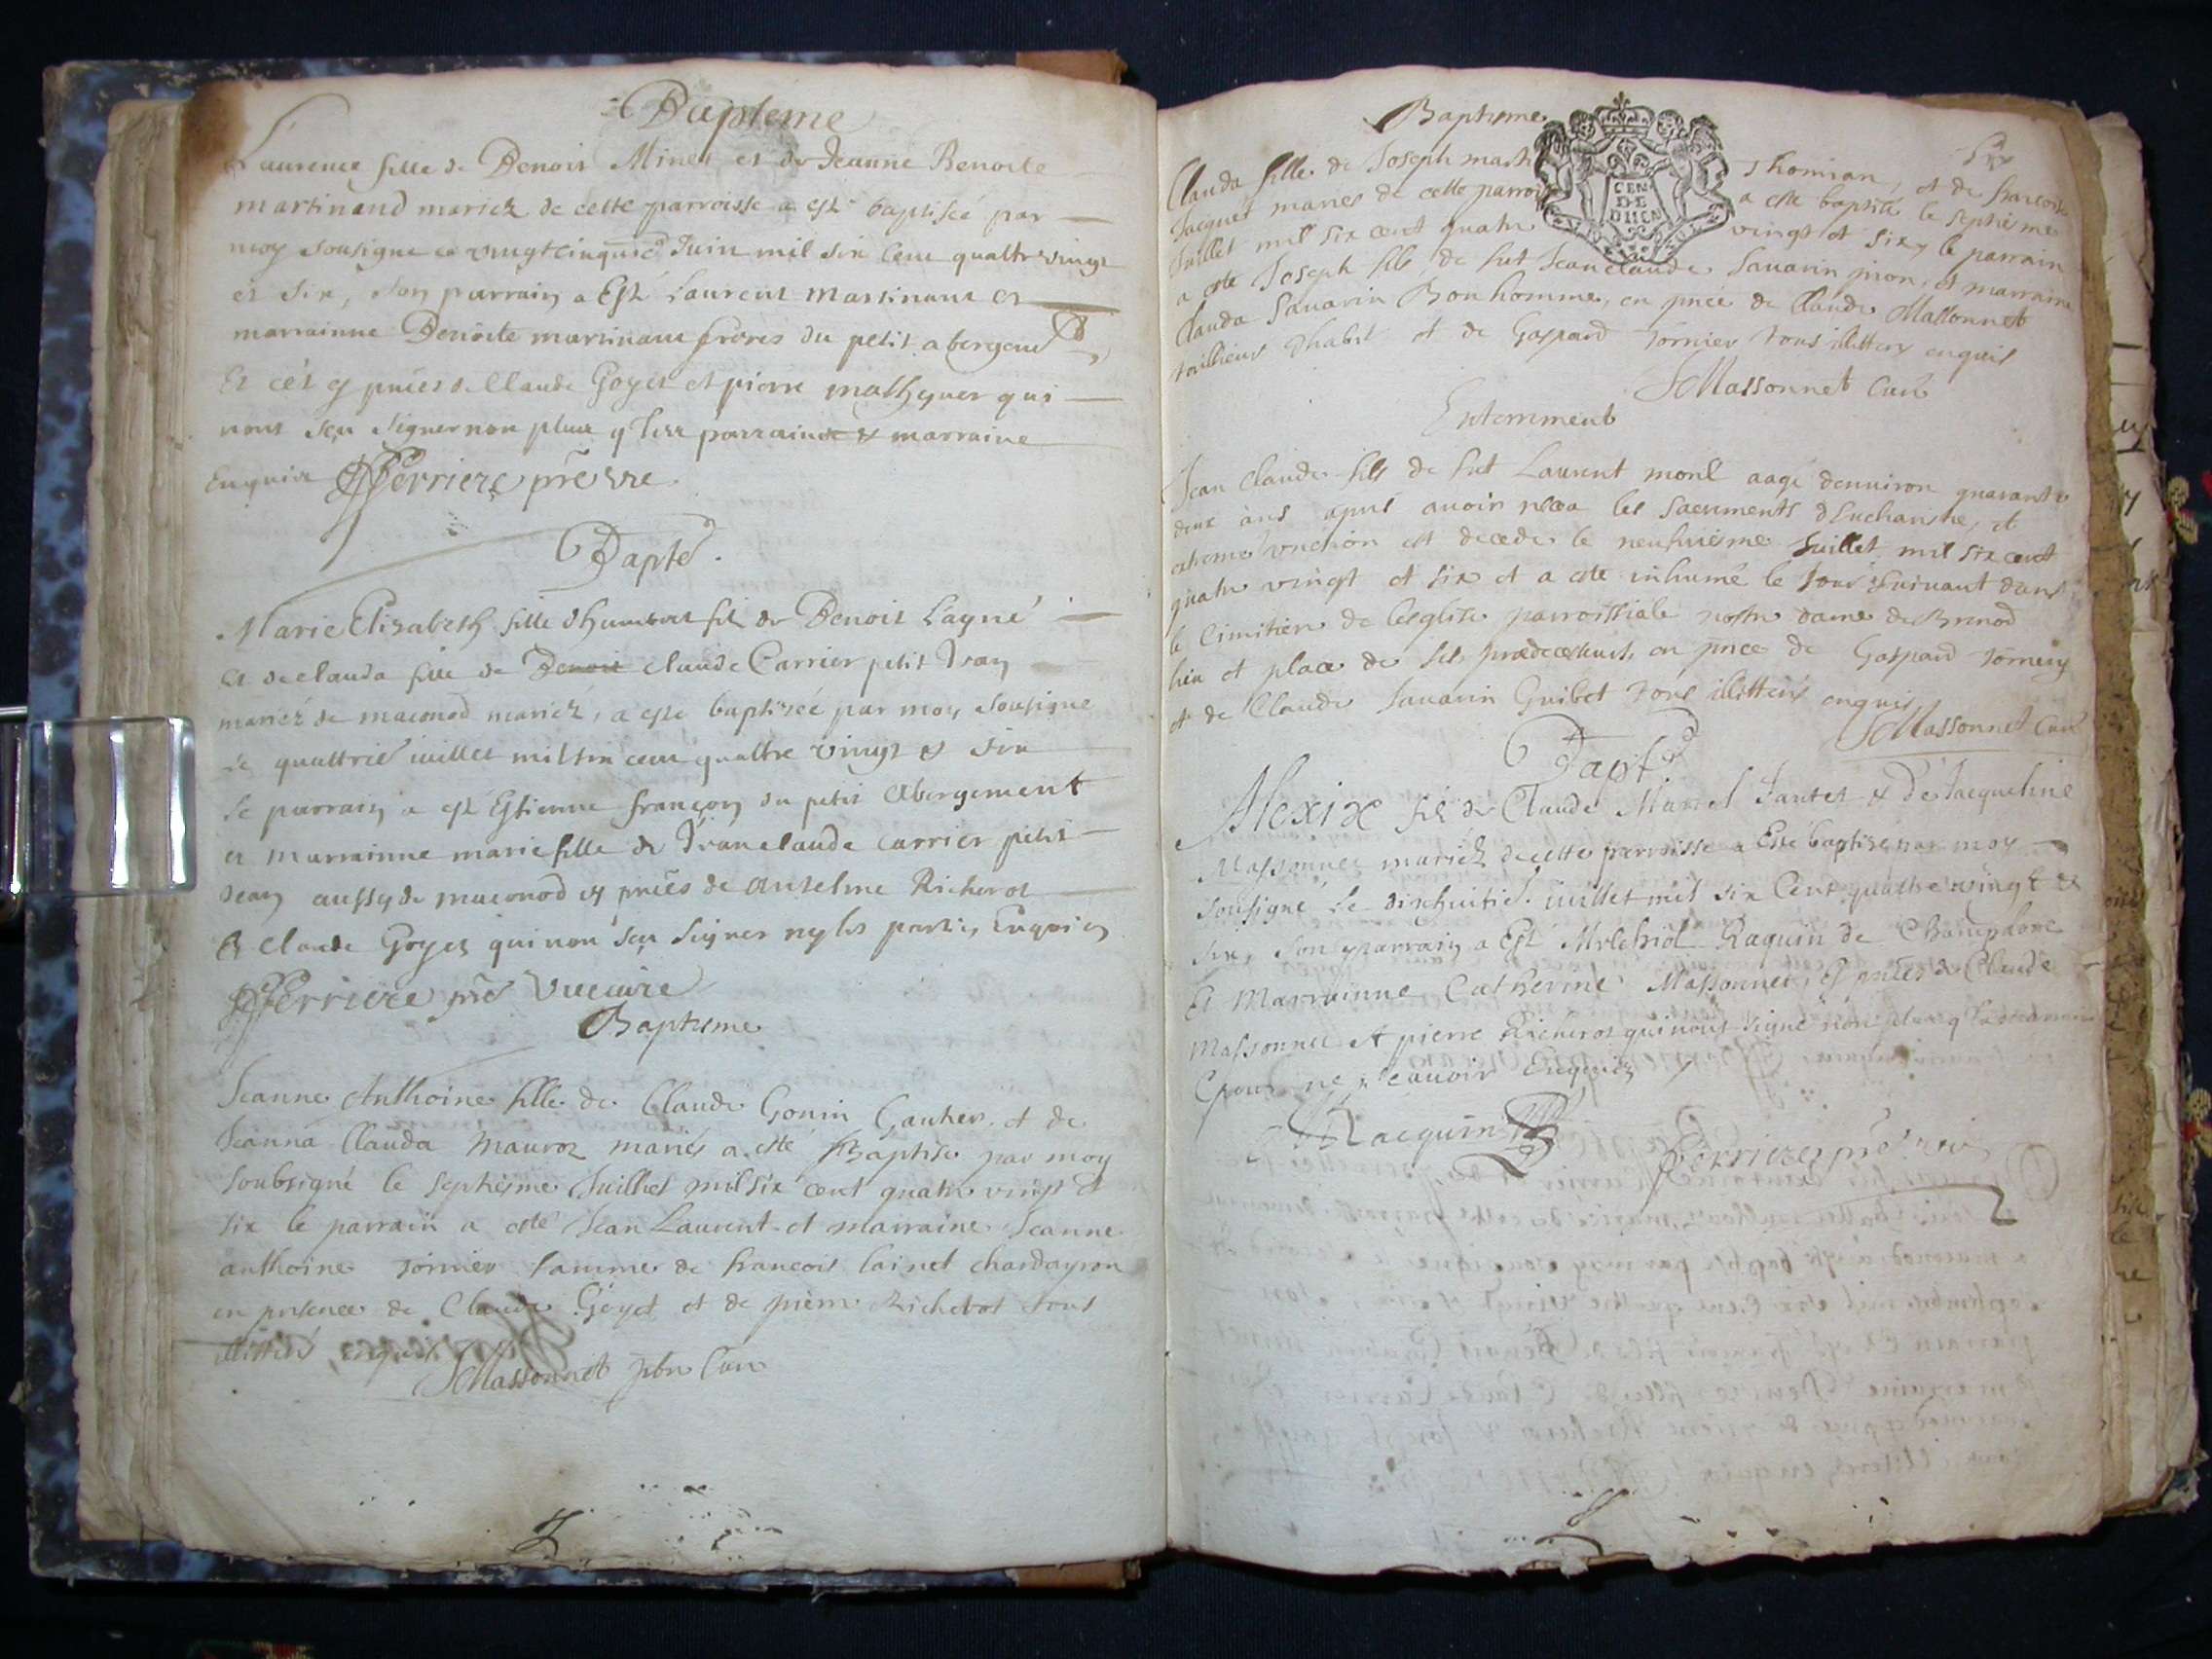 Bapteme
Laurence fille de Benoit Minet et de Jeanne Benoite
martinand mariez de cette parroisse a esté baptiseé par
moy sousigne ce vingtcinquie Juin mil six cent quattre vingt
et six, son parrain a Esté Laurent Martinant et
marrainne Benoite martinant freres du petit abergemt
Et cét en pnces de Claude Goyet et pierre
nont sçu signer non plus q les parrain & marraine
Enquis Perriere prestre
Bapte.
Marie Elisabeth fille d'humbert fils de Benoit Cagne
et de clauda fille de Benoit claude Carrier petit Jean
mariéz de maconod mariéz, a esté baptiseé par moy sousigne
le quattrie iuillet mil six cent quattre vingt & six
le parrain a esté Estienne françon du petit Abergement
et marrainne marie fille de Jean claude carrier petit
Jean aussy de maconod en pnces de anselme Richerot
& Claude Goyet qui non sçu signer ny les parties Enquis
Perriere pre viccaire
Baptisme
Jeanne Anthoine fille de Claude Gonin Gautier et de
Jeanna Clauda Mauroz mariés a esté Baptise par moy
soubsigné le septiesme Juillet mil six cent quatre vingt et
six le parrain a esté Jean Laurent et marraine Jeanne
anthoine Tornier famme de francois
en presence de Claude Goyet et de pierre Richerot tous
illitterés enquis
Massonnet pbre Curé
Baptisme
Clauda fille de Joseph Thomian, et de francoise
Jacquet mariés de cette parroisse a esté baptisée le septiesme
Juillet mil six cent quatre vingt et six, le parrain
a esté Joseph fils de fut Jean claude Sauarin piron, et marraine
Clauda Sauarin Bonhomme, en pnce de Claude Massonnet
taillieur d'habit et de Gaspard Tornier tous illitterés enquis
Massonnet Curé
CEN DE DIJON
Enterrement
Jean Claude fils de fut Laurent aagé d'enuiron quarante
deux ans apres auoir receu les sacrements d'Eucharistie, et
extreme onction est decede le neufuiesme Juillet mil six cent
quatre vingt et six et a esté inhumé le Jour suiuant dans
le Cimitiere de l'eglise parroissiale nostre dame de Brenod
lieu et place de ses prædecesseurs, en pnce de Gaspard Tornier
et de Claude Sauarin Guibet tous illitterés enquis
Massonnet Curé
Bapte
Alexix fils de Claude Marcel Jantet & de Jacqueline
Massonnet mariéz de cette parroisse a Esté baptisé par moy
sousigné le dixhuitie. iuillet mil six Cent quattre vingt &
six, son parrain a Esté Raquin de
Et Marrainne Catherine Massonnet, En pnces de Claude
Massonnet et pierre Richerot qui nont signé non plus q la marraine
pour ne sçauoir Enquis
Racquin
Perriere pre vic